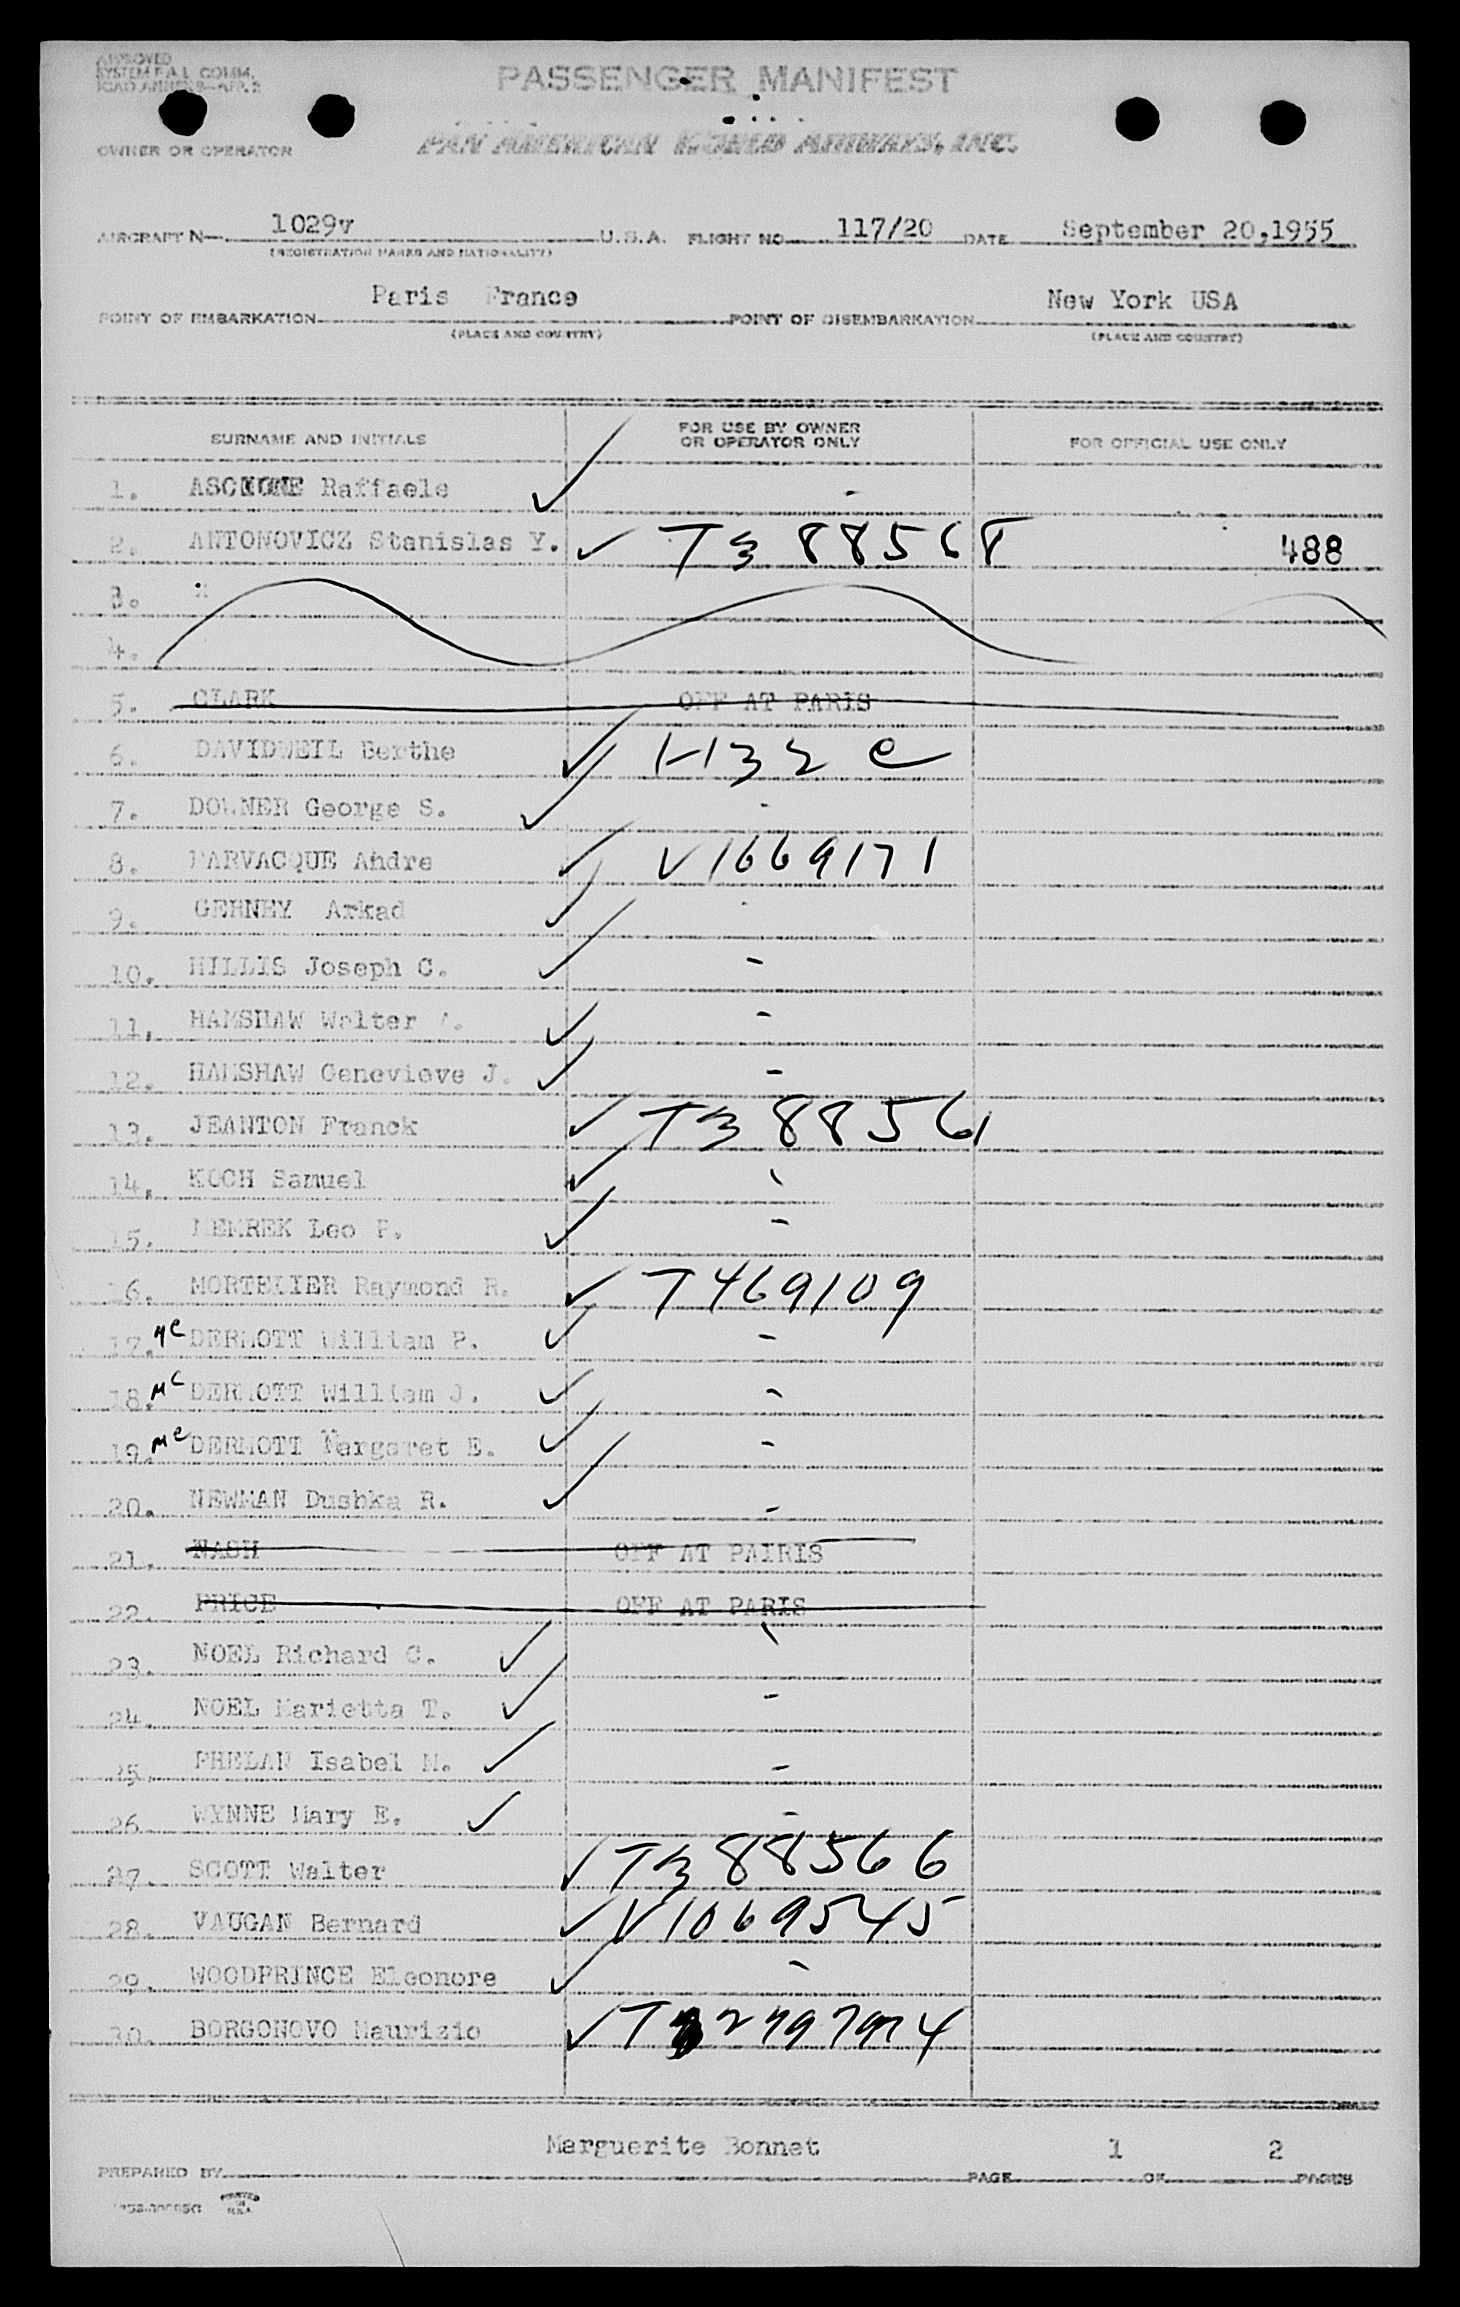 APPROVED
SYSTEM F.A.L. COMM.
ICAO ANNEX 9—APP. 2
PASSENGER MANIFEST
OWNER OR OPERATOR PAN AMERICAN WORLD AIRWAYS, INC.
AIRCRAFT N— 1029v U.S.A. FLIGHT NO. 117/20 DATE September 20,1955
(REGISTRATION MARKS AND NATIONALITY)
POINT OF EMBARKATION Paris France POINT OF DISEMBARKATION New York USA
(PLACE AND COUNTRY) (PLACE AND COUNTRY)
SURNAME AND INITIALS FOR USE BY OWNER OR OPERATOR ONLY FOR OFFICIAL USE ONLY
1. Raffaele -
2. ANTONOVICZ Stanislas Y. ✓ T388568 488
3.
4.
5. CLARK OFF AT PARIS
6. DAVIDWEIL Berthe ✓ 1-132 e
7. DOWNER George S. ✓ -
8. FARVACQUE Andre ✓ V1669171
9. GERNEY Arkad ✓ -
10. HILLIS Joseph C. ✓ -
11. HAMSHAW Walter ✓ -
12. HAMSHAW Genevieve J. ✓ -
13. JEANTON Franck ✓ T388561
14. KOCH Samuel ✓ -
15. Leo P. ✓ -
16. MORTELIER Raymond R. ✓ T469109
17. Mc DERMOTT William P. ✓ -
18. Mc DERMOTT William J. ✓ -
19. Mc DERMOTT Margaret E. ✓ -
20. NEWMAN Dushka R. ✓ -
21. NASH OFF AT PAIRIS
22. PRICE OFF AT PARIS
23. NOEL Richard C. ✓ -
24. NOEL Marietta T. ✓ -
25. PHELAN Isabel M. ✓ -
26. WYNNE Mary E. ✓ -
27. SCOTT Walter ✓ T388566
28. VAUGAN Bernard ✓ V1069545
29. WOODPRINCE Eleonore ✓ -
30. BORGONOVO Maurizio ✓
Marguerite Bonnet
PREPARED BY PAGE 1 OF 2 PAGES
PRINTED IN U.S.A.